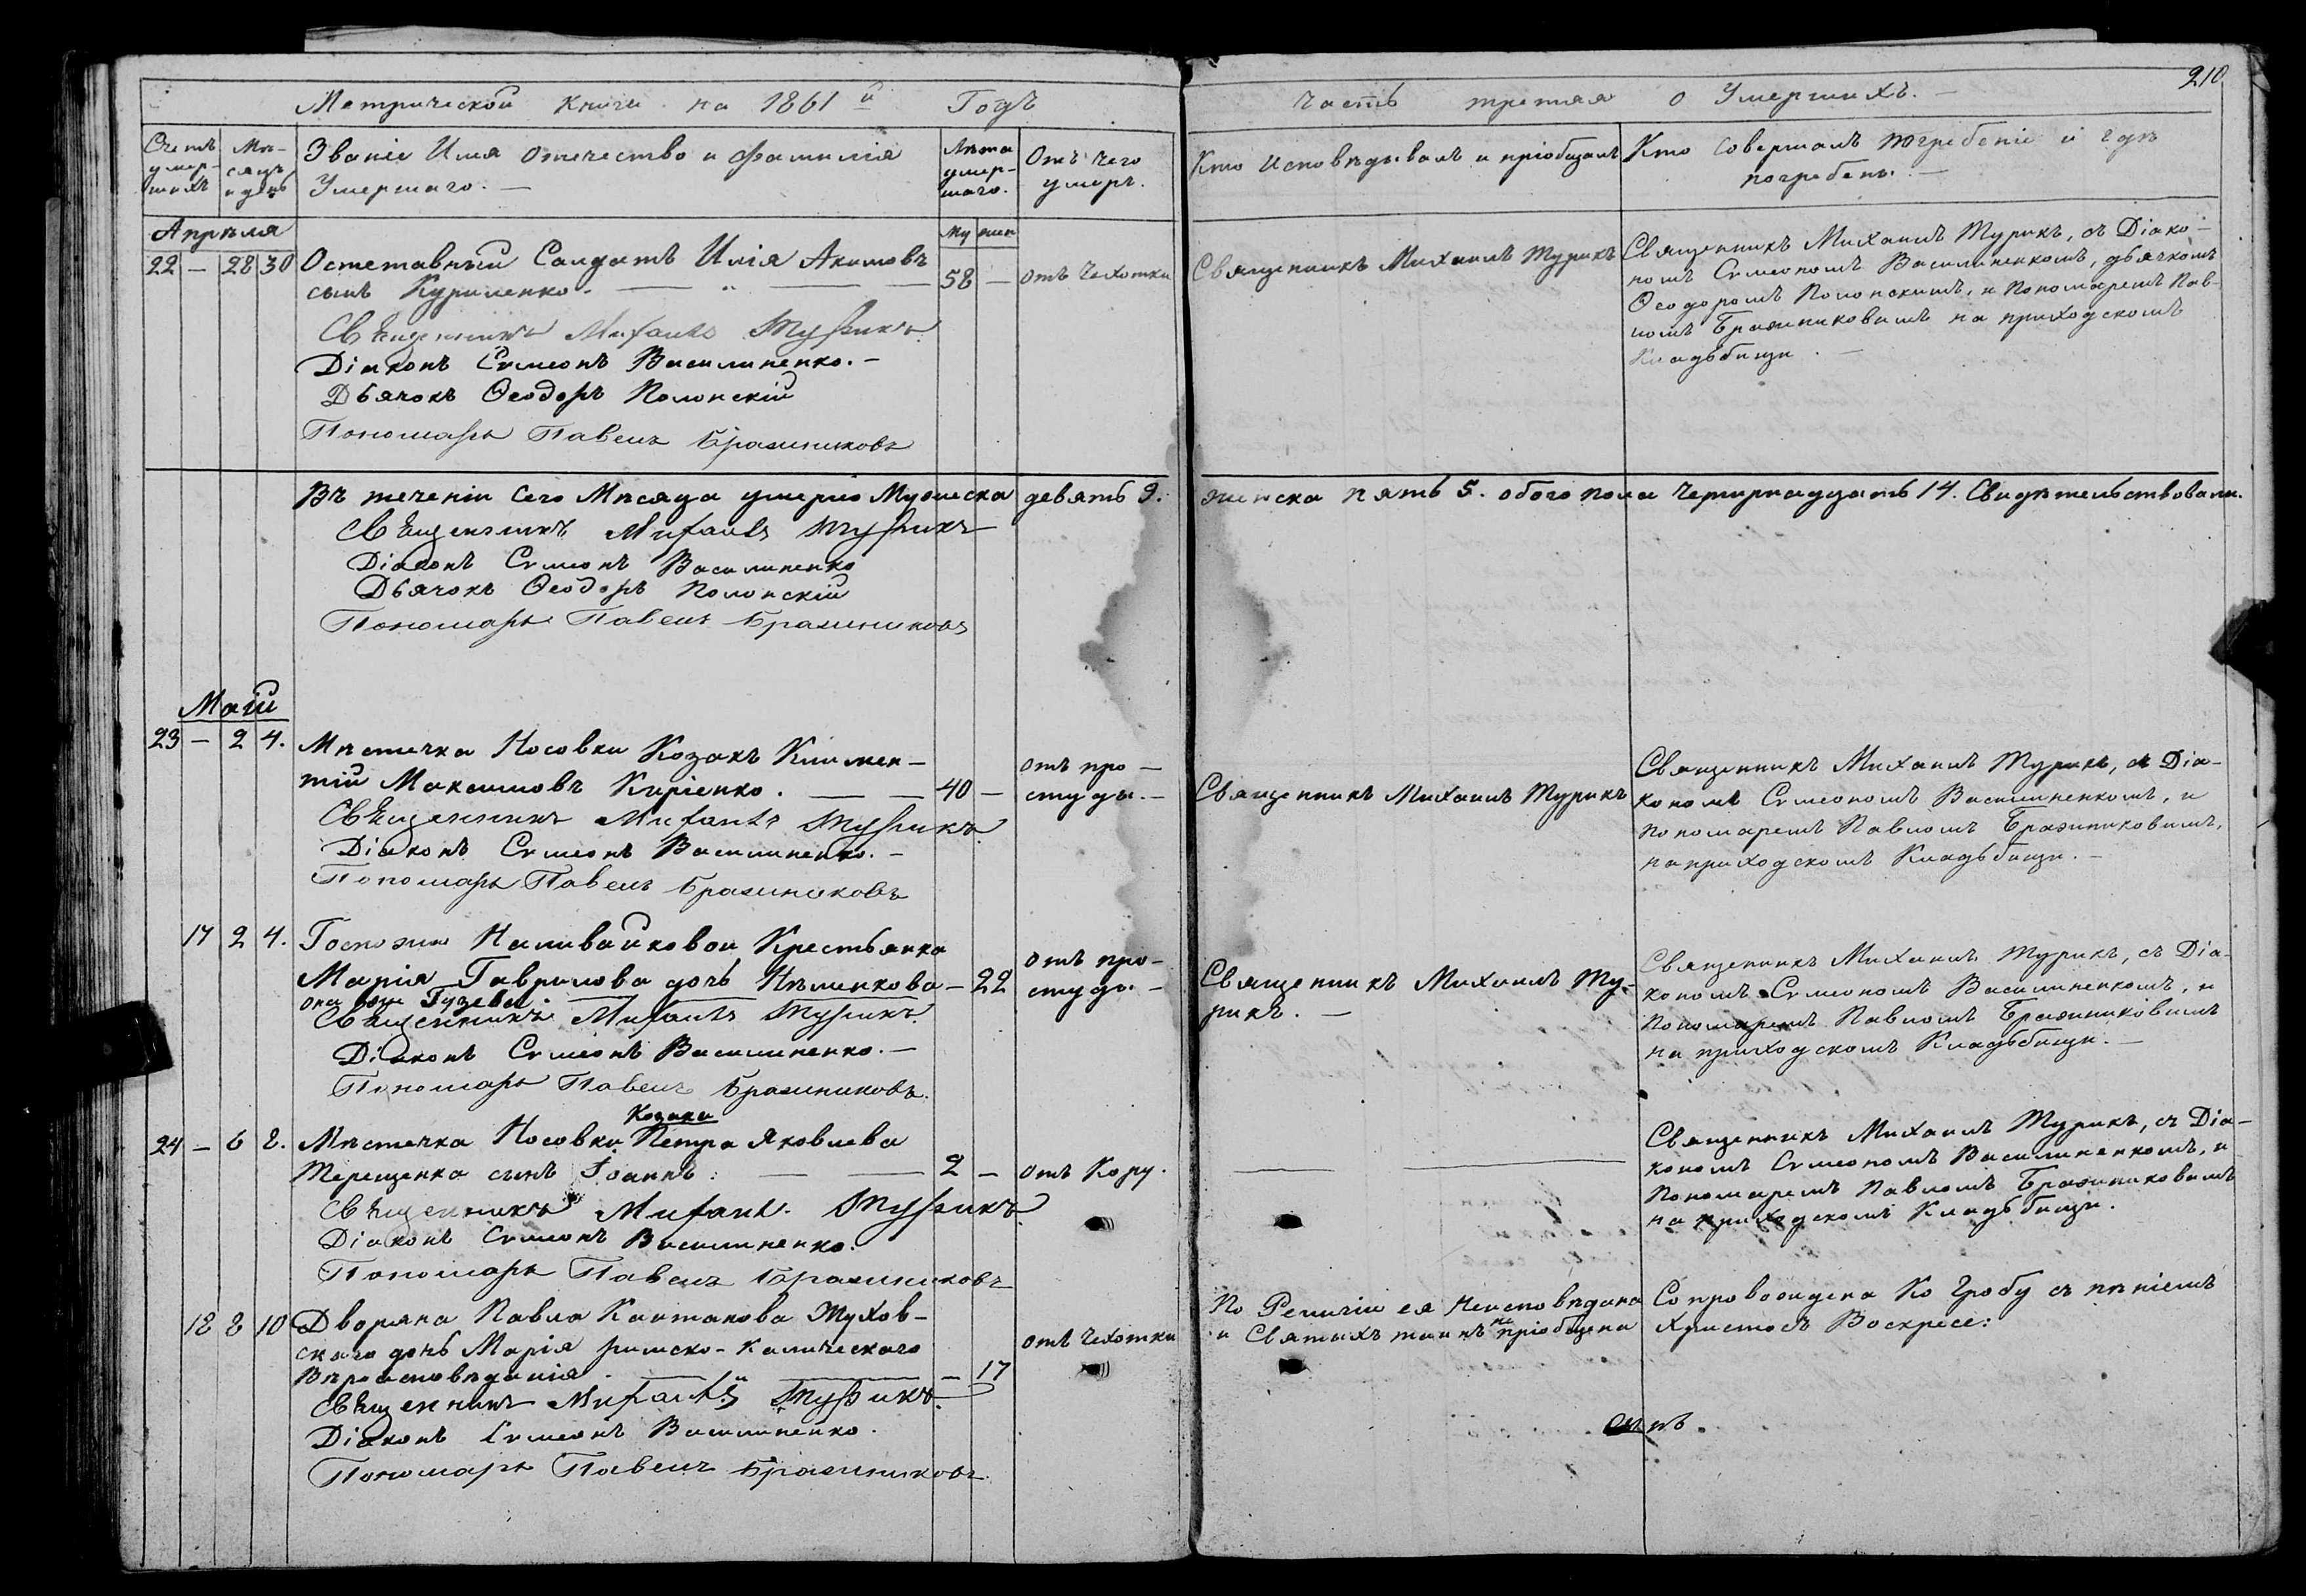 210
Метрической книги на 1861й Годъ
Часть третяя о Умершихъ.
Счетъ умер-шихъ
Мѣ-сяцъ и день
Званіе Имя отечество и фамилія
Умершаго. —
Лѣта умер-шаго.
Отъ чего умеръ.
Кто исповѣдывалъ и пріобщалъ
Кто совершалъ погребеніе и гдѣ
погребенъ. —
Апрѣля
Му жен
22 — 28 30 Остетавный Солдатъ Илія Акимовъ
сынъ Куриленко. — 58 — отъ Чахотки
Священникъ Михаилъ Турикъ
Діаконъ Симеонъ Василиненко. —
Дьячокъ Ѳеодоръ Полонскій
Пономарь Павелъ Бражниковъ
Священникъ Михаилъ Турикъ
Священникъ Михаилъ Турикъ, съ Діако-
номъ Симеономъ Василиненкомъ, дьячкомъ
Ѳеодоромъ Полонскимъ, и Пономаремъ Пав-
ломъ Бражниковимъ на приходскомъ
Кладьбищи. —
Въ теченіи сего Мѣсяца умерло Мужеска девять 9. женска пять 5. обого пола четирнадцать 14. Свидѣтельствовали.
Священникъ Михаилъ Турикъ
Діаконъ Симеонъ Василиненко
Дьячокъ Ѳеодоръ Полонскій
Пономарь Павелъ Бражниковъ
Маій
23 — 2 4. Мѣстечка Носовки Козакъ Климен-
тій Максимовъ Киріенко. — — 40 — отъ про-
студы. —
Священникъ Михаилъ Турикъ
Діаконъ Симеонъ Василиненко. —
Пономарь Павелъ Бражниковъ
Священникъ Михаилъ Турикъ
Священникъ Михаилъ Турикъ, съ Діа-
кономъ Симеономъ Василиненкомъ, и
Пономаремъ Павломъ Бражниковимъ,
на приходскомъ Кладьбищи. —
17 2 4. Госпожи Наливайковой Крестьянка
Марія Гаврилова дочь
— 22 отъ про-
студы. —
Священникъ Михаилъ Турикъ
Діаконъ Симеонъ Василиненко. —
Пономарь Павелъ Бражниковъ.
Священникъ Михаилъ Ту-
рикъ. —
Священникъ Михаилъ Турикъ, съ Діа-
кономъ Симеономъ Василиненкомъ, и
Пономаремъ Павломъ Бражниковимъ
на приходскомъ Кладьбищи. —
Козака
24 — 6 8. Мѣстечка Носовки Петра Яковлева
Терещенка сынъ Іоаннъ. — — 2 — отъ Кору.
Священникъ Михаилъ Турикъ
Діаконъ Симеонъ Василиненко.
Пономарь Павелъ Бражниковъ
Священникъ Михаилъ Турикъ, съ Діа-
кономъ Симеономъ Василиненкомъ, и
Пономаремъ Павломъ Бражниковимъ
на приходскомъ Кладьбищи.
18 8 10 Дворяна Павла
скаго дочь Марія римско-
Вѣроисповѣданія. — — 17 отъ Чахотки
Священникъ Михаилъ Турикъ.
Діаконъ Симеонъ Василиненко.
Пономарь Павелъ Бражниковъ.
По Религіи ея Неисповѣдана
и Святыхъ таинъ не пріобщена
Сопровождена Ко Гробу съ пѣніемъ
Христосъ Воскресе: